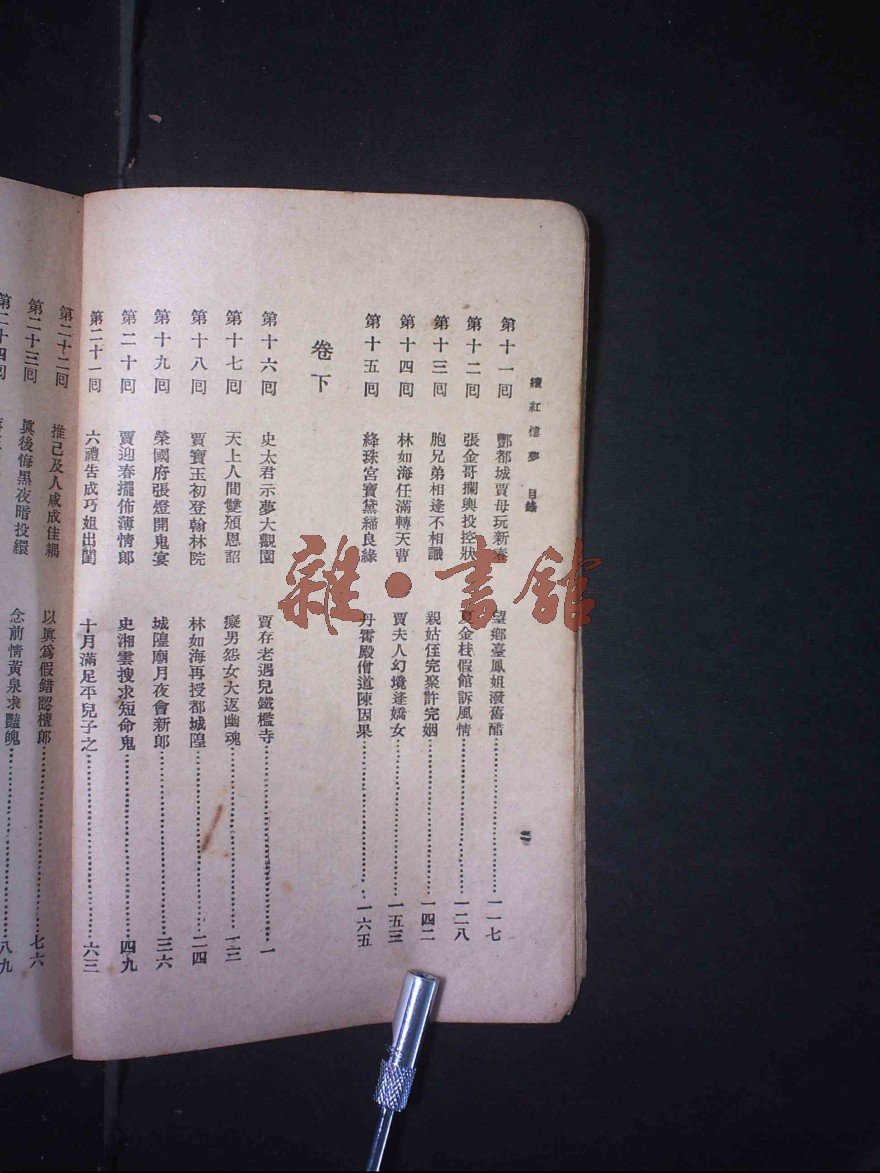 續紅樓夢 目錄
第十一囘 酆都城賈母玩新春 望鄉臺鳳姐潑舊醋 一一七
第十二囘 張金哥攔輿投控狀 夏金桂假館訴風情 一二八
第十三囘 胞兄弟相逢不相識 親姑侄完聚許完姻 一四二
第十四囘 林如海任滿轉天曹 賈夫人幻境逢嬌女 一五三
第十五囘 絳珠宮寶黛締良緣 丹霄殿僧道陳因果 一六五
卷下
第十六囘 史太君示夢大觀園 賈存老遇兒鐵檻寺 一
第十七囘 天上人間雙頒恩詔 癡男怨女大返幽魂 一三
第十八囘 賈寶玉初登翰林院 林如海再授都城隍 二四
第十九囘 榮國府張燈開鬼宴 城隍廟月夜會新郎 三六
第二十囘 賈迎春擺佈薄情郎 史湘雲搜求短命鬼 四九
第二十一囘 六禮告成巧姐出閨 十月滿足平兒子之 六三
第二十二囘 推己及人咸成佳耦 以眞爲假錯認檀郎 七六
第二十三囘 眞後悔黑夜暗投繯 念前情黃泉求豔魄 八九
第二十四囘
二
雜·書館